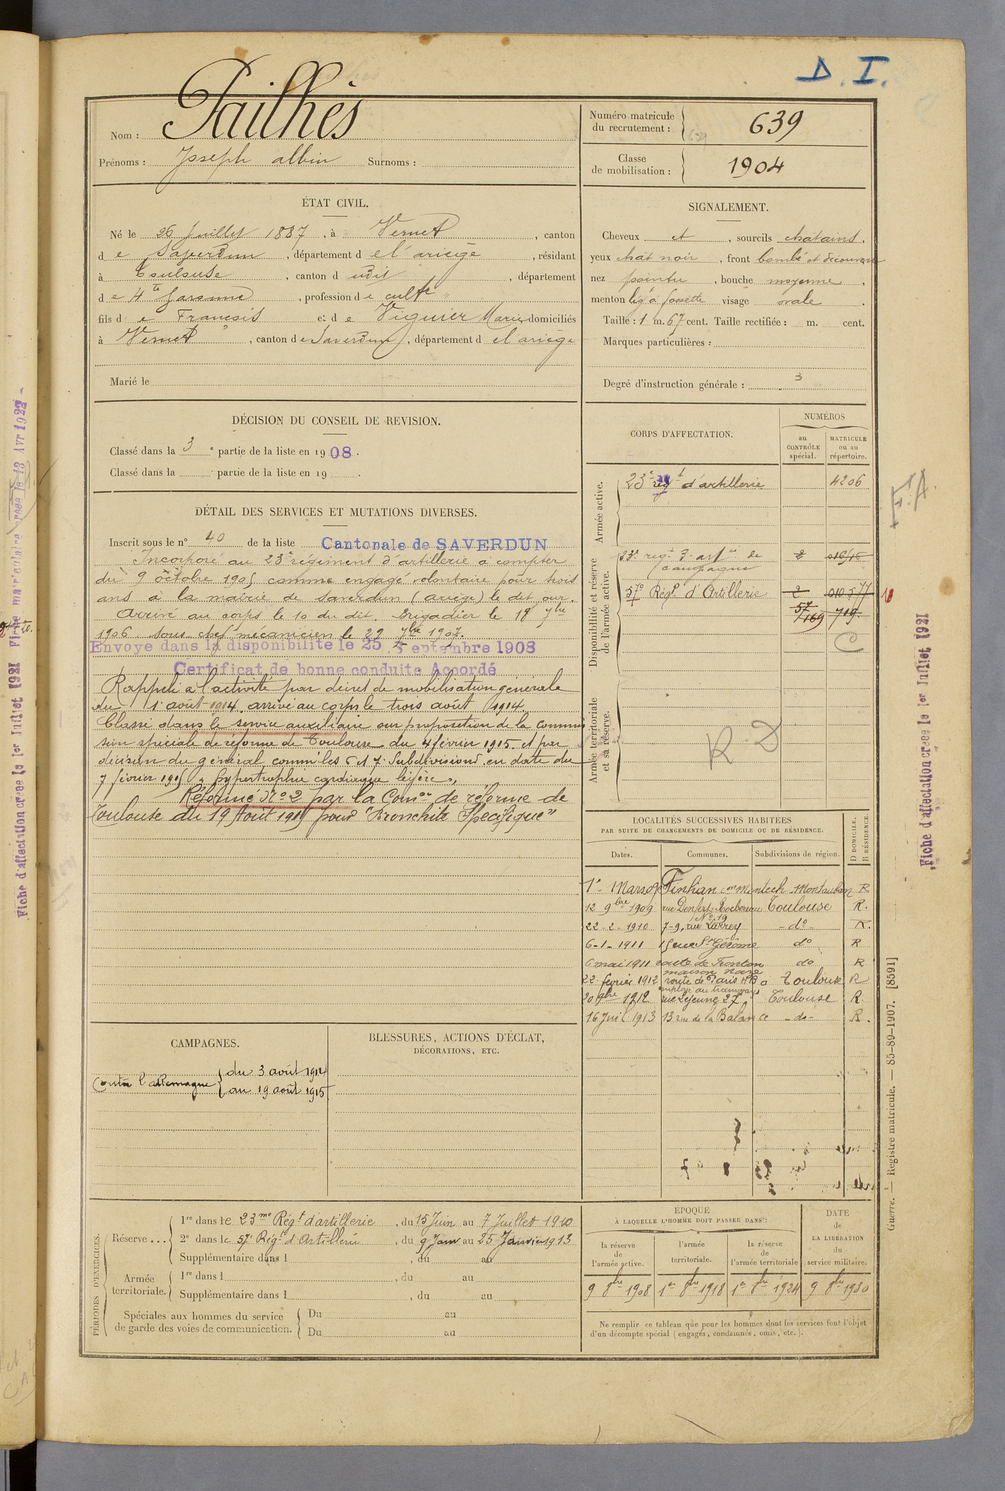 D. I.
Nom : Pailhès
Prénoms : Joseph albin Surnoms :
Numéro matricule du recrutement : 639
Classe de mobilisation : 1904
ÉTAT CIVIL.
Né le 26 Juillet 1887, à Vernet, canton
de Saverdun, département de l'ariège, résidant
à Toulouse, canton d udit, département
de Hte Garonne, profession de cultr
fils de François et de Viguier Marie domiciliés
à Vernet, canton de Saverdun, département de l'ariège
Marié le
SIGNALEMENT.
Cheveux et, sourcils chatains,
yeux chat noir, front bombé et découvert
nez pointu, bouche moyenne,
menton lég à fossette visage ovale.
Taille : 1 m. 67 cent. Taille rectifiée : m. cent.
Marques particulières :
Degré d'instruction générale : 3
DÉCISION DU CONSEIL DE REVISION.
Classé dans la 3e partie de la liste en 1908.
Classé dans la partie de la liste en 19
DÉTAIL DES SERVICES ET MUTATIONS DIVERSES.
Inscrit sous le n° 40 de la liste Cantonale de SAVERDUN
Incorporé au 23e régiment d'artillerie à compter
du 9 octobre 1905 comme engagé volontaire pour trois
ans à la mairie de Saverdun (ariège) le dit jour.
Arrivé au corps le 10 du dit. Brigadier le 18 7bre
1906. Sous chef mécanicien le 22 7bre 1907.
Envoyé dans la disponibilité le 25 Septembre 1908
Certificat de bonne conduite Accordé
Rappelé à l'activité par décret de mobilisation générale
du 1r août 1914, arrivé au corps le trois août 1914.
Classé dans le service auxiliaire sur proposition de la commis
sion spéciale de réforme de Toulouse du 4 février 1915. et par
décision du général comm. les 5 et 7e Subdivisions en date du
7 février 1915 "hypertrophie cardiaque légère",
Réformé N°2 par la Comon de réforme de
Toulouse du 19 Août 1915 pour "Bronchite Spécifique"
CORPS D'AFFECTATION.
NUMÉROS
au CONTRÔLE spécial.
MATRICULE ou au répertoire.
Armée active.
23e régt d'artillerie 4206
Disponibilité et réserve de l'armée active.
23e régt d'artie de campagne 2
57e Régt d'Artillerie 2
57
7169 719.
C
Armée territoriale et sa réserve.
R D
F.A.
LOCALITÉS SUCCESSIVES HABITÉES
PAR SUITE DE CHANGEMENTS DE DOMICILE OU DE RÉSIDENCE.
Dates. Communes. Subdivisions de région. D DOMICILE. R RÉSIDENCE.
1er Mars 09 Finhan con Montech Montauban R
12 9bre 1909 rue Denfert Rochereau N° 19 Toulouse R.
22-2-1910 7-9, rue Larrey do R.
6-1-1911 15 rue St Jérôme do R
6 mai 1911 route de Fronton maison Noire do R
22 février 1912 route de Paris Toulouse R
employé au tramways
20 9bre 1912 rue Lejeune 27. Toulouse R
16 Juil 1913 13 rue de la Balance do R.
CAMPAGNES.
Contre l'allemagne { du 3 août 1914
au 19 août 1915
BLESSURES, ACTIONS D'ÉCLAT,
DÉCORATIONS, ETC.
PÉRIODES D'EXERCICES.
Réserve... 1re dans le 23me Régt d'artillerie, du 15 Juin au 7 Juillet 1910
2e dans le 57e Régt d'Artillerie, du 9 Janv au 25 Janvier 1913
Supplémentaire dans l , du au
Armée territoriale. 1re dans l , du au
Supplémentaire dans l , du au
Spéciales aux hommes du service de garde des voies de communication. Du au
Du au
ÉPOQUE
À LAQUELLE L'HOMME DOIT PASSER DANS :
la réserve de l'armée active.
l'armée territoriale.
la réserve de l'armée territoriale
DATE de LA LIBÉRATION du service militaire.
9 8bre 1908 1er 8bre 1918 1er 8bre 1924 9 8bre 1930
Ne remplir ce tableau que pour les hommes dont les services font l'objet
d'un décompte spécial (engagés, condamnés, omis, etc.).
Guerre. — Registre matricule. — 85-89-1907. [8591]
Fiche d'affectation créée le 1er Juillet 1921
Fiche d'affectation créée le 1er Juillet 1921 Fiche matriculaire créée le 13 Avr 1922